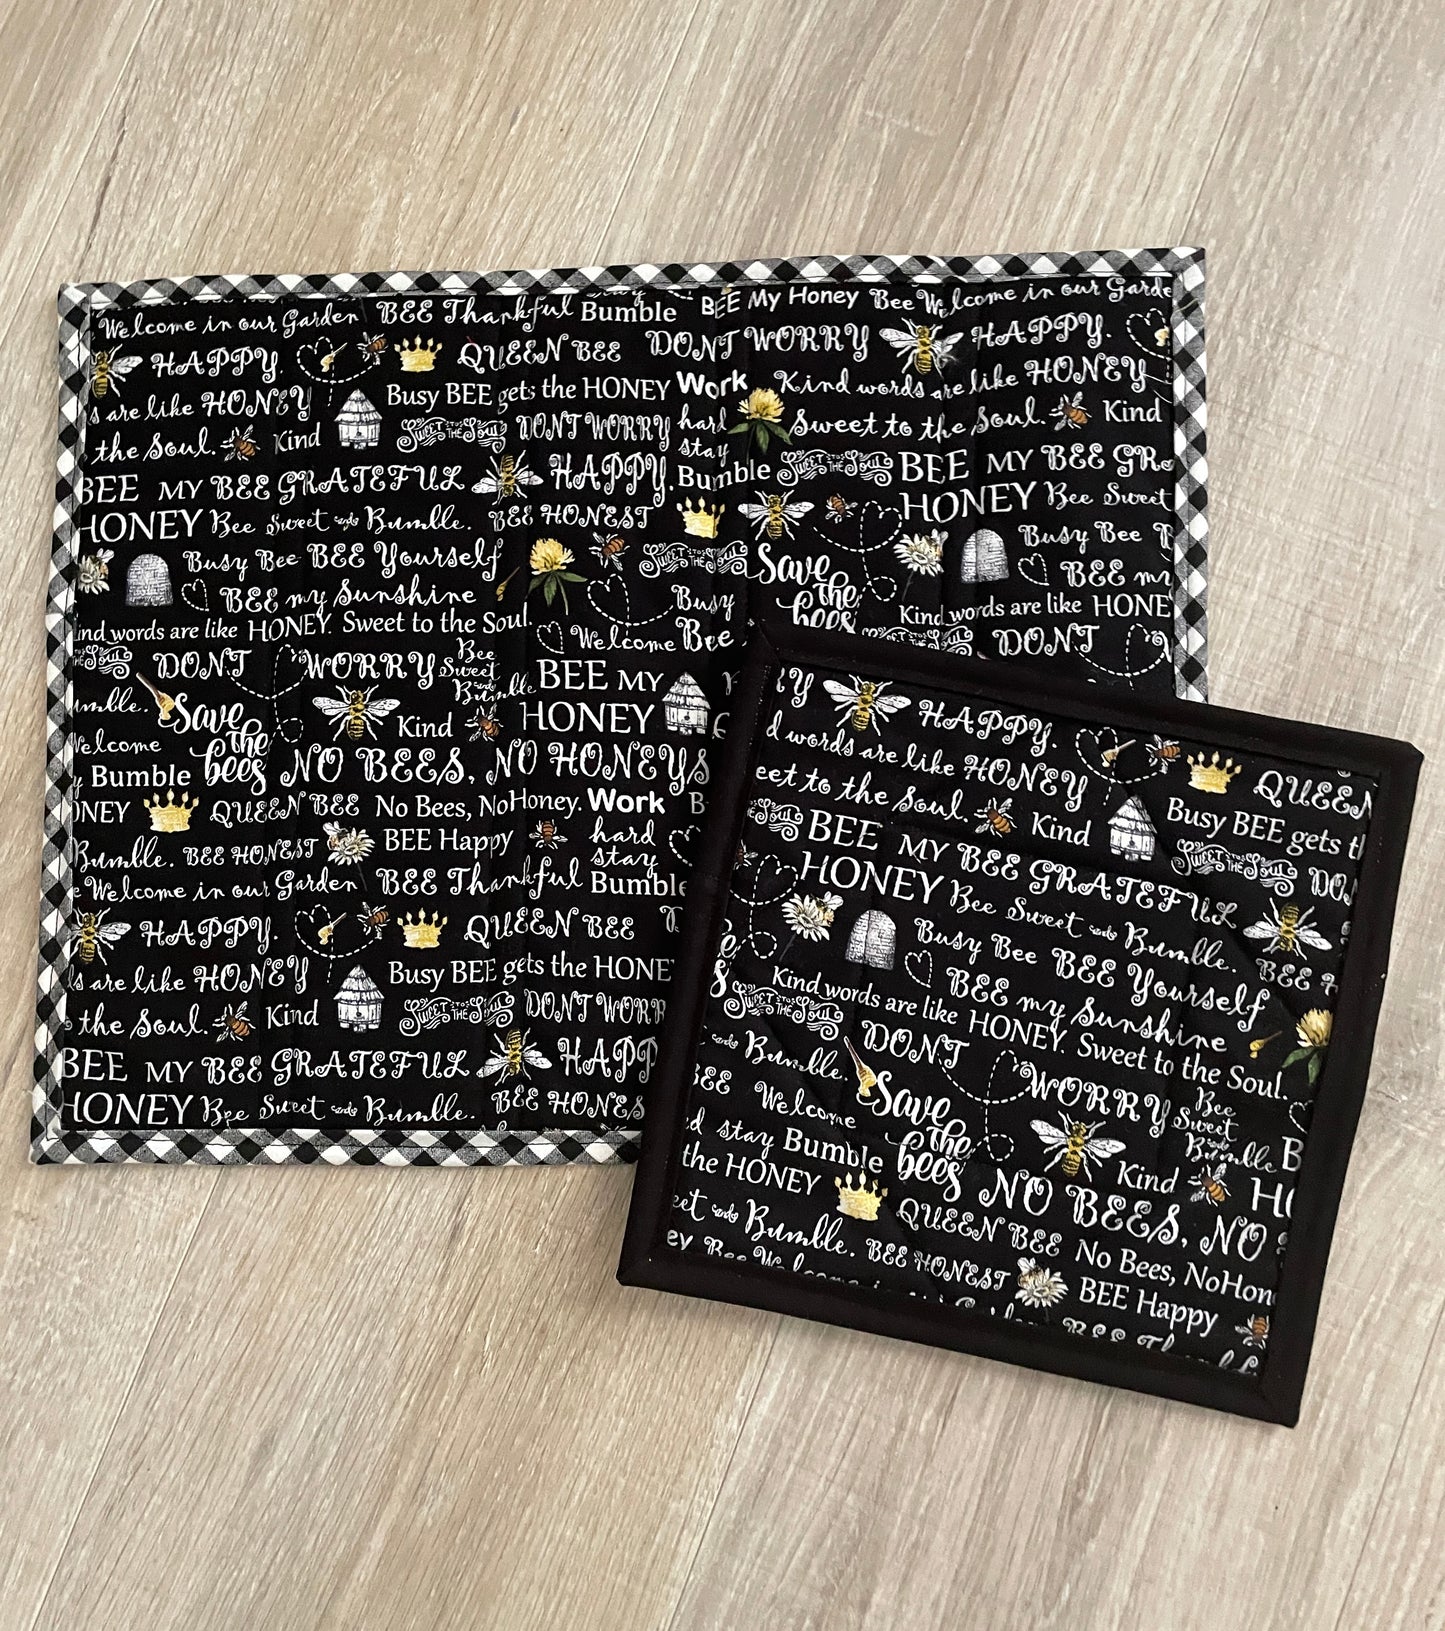 Welcome in our Garden BEE Thankful Bumble BEE My Honey Bee Welcome in our Garde
HAPPY. QUEEN BEE DONT WORRY HAPPY.
s are like HONEY Busy BEE gets the HONEY Work Kind words are like HONEY
the Soul. Kind SWEET TO THE Soul DONT WORRY hard Sweet to the Soul. Kind
stay
BEE MY BEE GRATEFUL HAPPY. Bumble SWEET TO THE Soul BEE MY BEE GR
HONEY Bee Sweet and Bumble. BEE HONEST HONEY Bee Sweet
Busy Bee BEE Yourself SWEET TO THE Soul Save the bees Busy Bee
BEE my Sunshine Busy BEE my
ind words are like HONEY. Sweet to the Soul. Kind words are like HONE
Welcome Bee DONT
THE Soul DONT WORRY Bee Sweet and Bumble BEE MY
umble. Save the bees Kind HONEY
Welcome
y Bumble NO BEES, NO HONEY S
ONEY QUEEN BEE No Bees, NoHoney. Work
Bumble. BEE HONEST BEE Happy hard
stay
e Welcome in our Garden BEE Thankful Bumble
HAPPY. QUEEN BEE
ds are like HONEY Busy BEE gets the HONE
the Soul. Kind SWEET TO THE Soul DONT WORR
BEE MY BEE GRATEFUL HAPP
HONEY Bee Sweet and Bumble. BEE HONES
RY HAPPY.
d words are like HONEY QUEEN
eet to the Soul. Kind Busy BEE gets th
Soul BEE MY BEE GRATEFUL SWEET TO THE Soul DO
HONEY Bee Sweet and Bumble. BEE H
Busy Bee BEE Yourself
Kind words are like HONEY. BEE my Sunshine
SWEET TO THE Soul Sweet to the Soul.
and Bumble. DONT WORRY Bee Sweet and Bumble
BEE Welcome Save the bees Kind
d stay Bumble NO BEES, NO
the HONEY QUEEN BEE No Bees, NoHon
eet and Bumble. BEE HONEST BEE Happy
ey Bee Welcome in